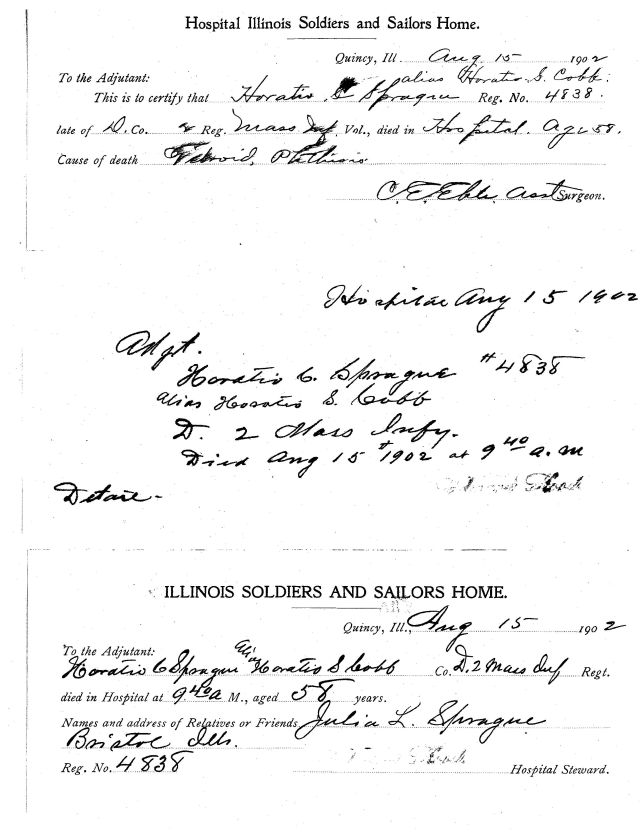 Hospital Illinois Soldiers and Sailors Home.
Quincy, Ill. Aug 15 1902
alias Horatio S. Cobb.
To the Adjutant:
This is to certify that Horatio C Sprague Reg. No. 4838.
late of D. Co. 2 Reg. Mass Inf Vol., died in Hospital. Age 58.
Cause of death Febroid, Phthisis
C. E. Ehle. Asst Surgeon.
Hospital Aug 15 1902
Adgt.
Horatio C. Sprague #4838
alias Horatio S. Cobb
D. 2 Mass Infy.
Died Aug 15th 1902 at 9 40 a.m
ILLINOIS SOLDIERS AND SAILORS HOME.
Quincy, Ill., Aug 15 1902
To the Adjutant:
Horatio C Sprague Alias Horatio S Cobb Co. D. 2 Mass Inf Regt.
died in Hospital at 9.40 a M., aged 58 years.
Names and address of Relatives or Friends Julia L. Sprague
Bristol Ills.
Reg. No. 4838
Hospital Steward.